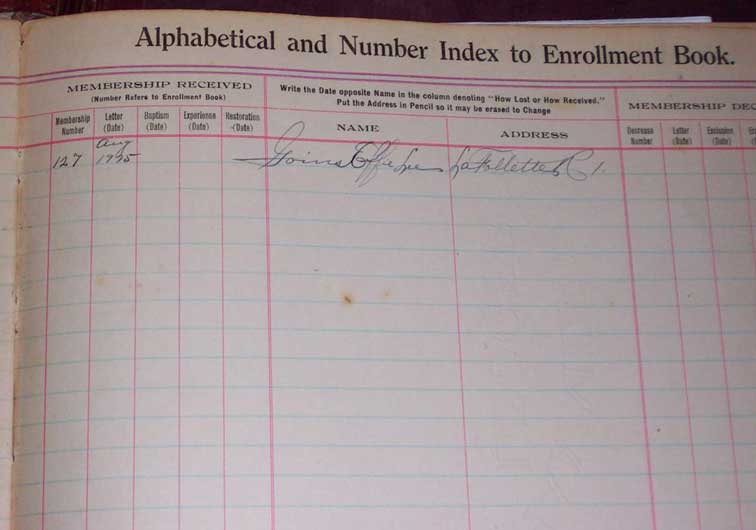 Alphabetical and Number Index to Enrollment Book.
MEMBERSHIP RECEIVED
(Number Refers to Enrollment Book)
Write the Date opposite Name in the column denoting "How Lost or How Received."
Put the Address in Pencil so it may be erased to Change
MEMBERSHIP DEC
Membership Number
Letter (Date)
Baptism (Date)
Experience (Date)
Restoration (Date)
NAME
ADDRESS
Decrease Number
Letter (Date)
Exclusion (Date)
Aug
127 Goins LaFollette